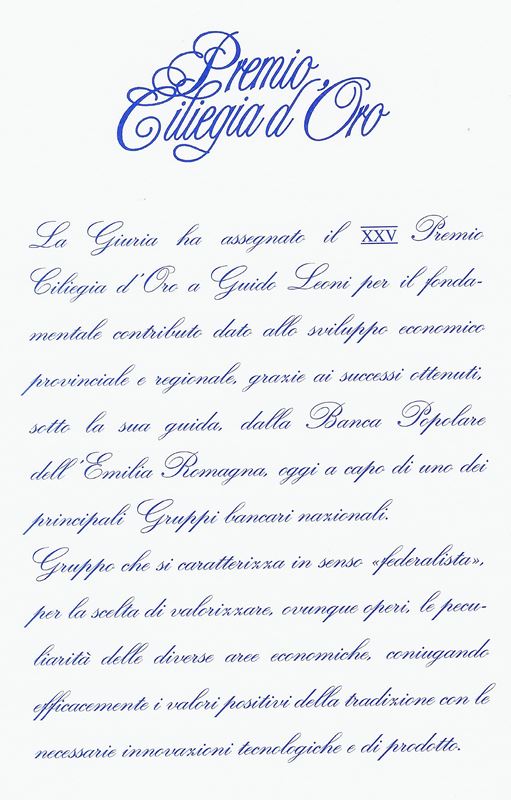 Premio
Ciliegia d'Oro
La Giuria ha assegnato il XXV Premio
Ciliegia d'Oro a Guido Leoni per il fonda-
mentale contributo dato allo sviluppo economico
provinciale e regionale, grazie ai successi ottenuti,
sotto la sua guida, dalla Banca Popolare
dell'Emilia Romagna, oggi a capo di uno dei
principali Gruppi bancari nazionali.
Gruppo che si caratterizza in senso «federalista»,
per la scelta di valorizzare, ovunque operi, le pecu-
liarità delle diverse aree economiche, coniugando
efficacemente i valori positivi della tradizione con le
necessarie innovazioni tecnologiche e di prodotto.